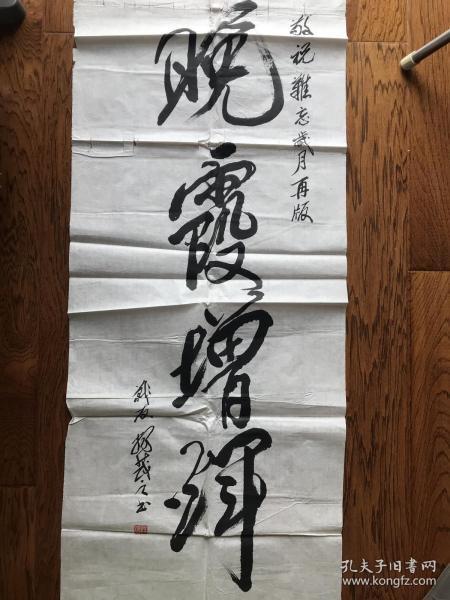 敬祝難忘歲月再版
晚霞增輝
戰友楊茂之书
孔夫子旧书网
www.kongfz.com